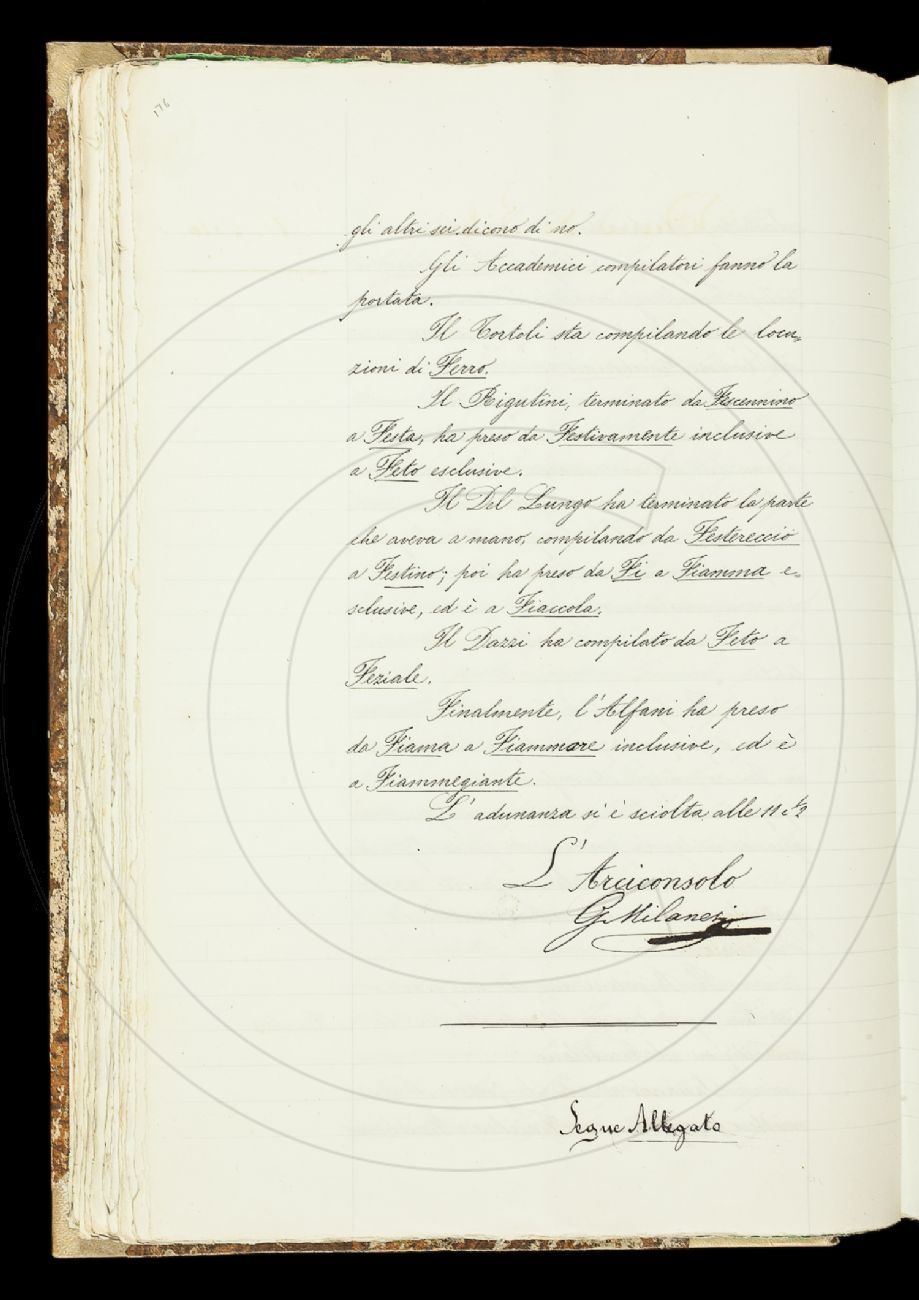 176
gli altri sei dicono di no.
Gli Accademici compilatori fanno la
portata.
Il Tortoli sta compilando le locu-
zioni di Ferro.
Il Rigutini, terminato da Fescennino
a Festa, ha preso da Festivamente inclusive
a Feto esclusive.
Il Del Lungo ha terminato la parte
che aveva a mano, compilando da Festereccio
a Festino; poi ha preso da Fi a Fiamma e-
sclusive, ed è a Fiaccola.
Il Dazzi ha compilato da Feto a
Feziale.
Finalmente, l'Alfani ha preso
da Fiama a Fiammare inclusive, ed è
a Fiammegiante.
L'adunanza si è sciolta alle 11 e ½
L'Arciconsolo
G. Milanesi
Segue Allegato